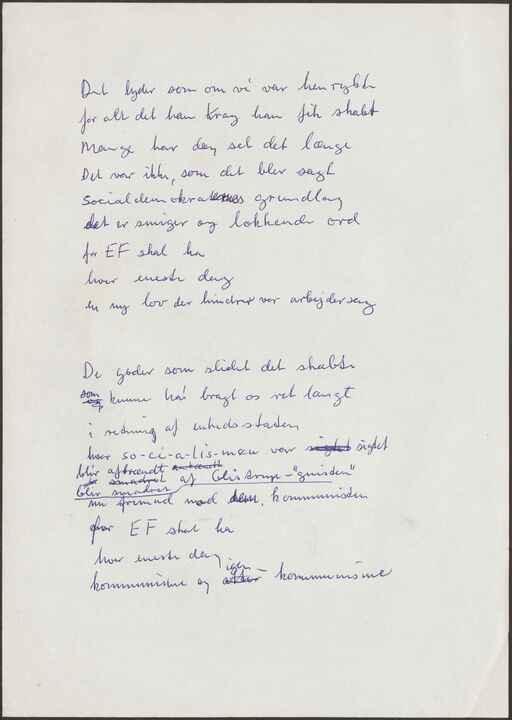 Det lyder som om vi var henrykte
for alt det han Krag han fik skabt
Mange har dog set det længe
Det var ikke, som det blev sagt
Socialdemokraternes grundlag
det er smiger og lokkende ord
for EF skal ha
hver eneste dag
en ny lov der hindrer vor arbejdersag
De goder som slidet det skabte
som kunne ha' bragt os ret langt
i retning af enhedsstaten
hvor so-ci-a-lis-men var sigtet
blir aftrændt
af Glistrup-"gnisten"
blir smadret
nu fremad mod kommunisten
for EF skal ha
hver eneste dag
kommunisme og igen - kommunisme